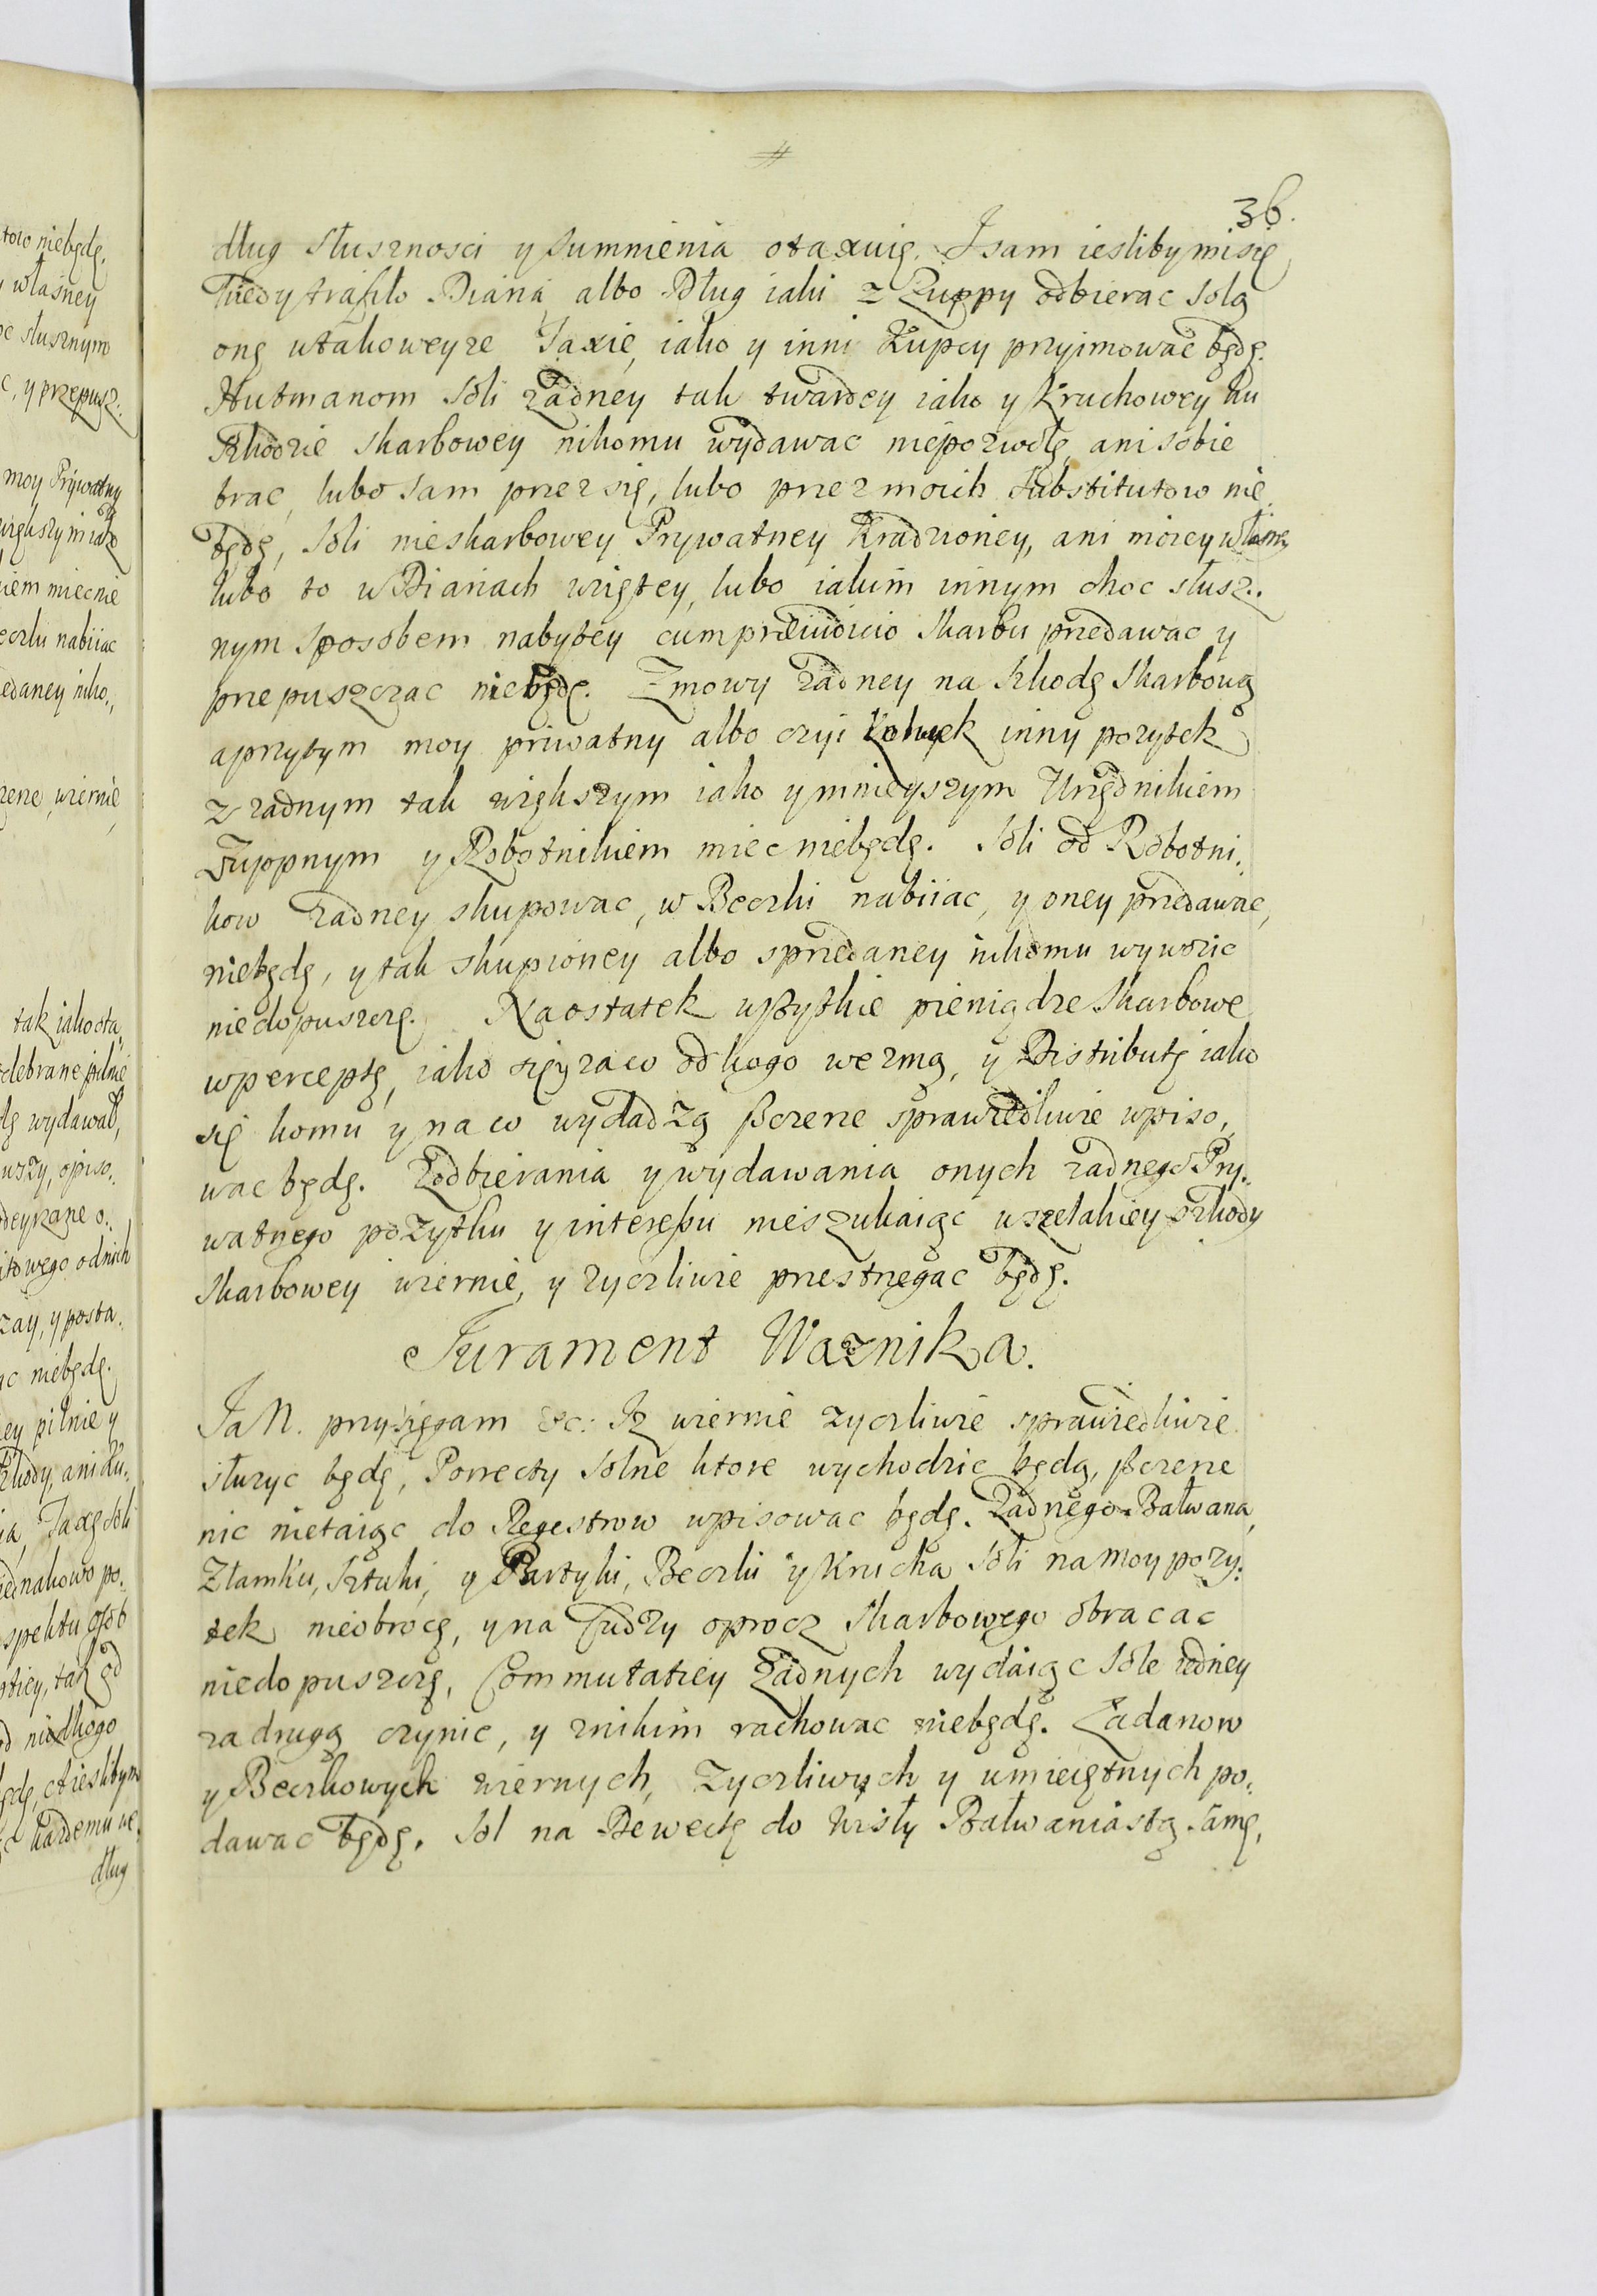 36.
dług słusznosci y sumnienia otaxuię. I sam iesliby mi się
kiedy trafiło Diaria albo Dług iaki z Zuppy odbierac solą
onę w takoweyze Taxie, iako y inni Kupcy przyimowac będę.
Hutmanom soli zadney tak twardey iako y Kruchowey ku
szkodzie skarbowey nikomu wydawac niepozwolę, ani sobie
brac, lubo sam przez się, lubo przez moich substitutow nie
będę, soli nieskarbowey Prywatney Kradzioney, ani moiey własney
lubo to w Diariach wziętey, lubo iakim innym choc słusz..
nym sposobem nabytey cum preiudicio skarbu przedawac y
przepuszczac niebędę. Zmowy zadney na szkodę skarbową
a przytym moy priwatny albo czyi kolwiek inny pozytek
z zadnym tak większym iako y mnieyszym Urzędnikiem
Zuppnym y Robotnikiem miec niebędę. Soli od Robotni.
kow zadney skupowac, w Beczki nabiiac, y oney przedawac,
niebędę, y tak skupioney albo sprzedaney nikomu wywozic
niedopuszczę. Na ostatek wszytkie pieniądze skarbowe
w perceptę, iako się y za co od kogo wezmą, y Distributę iako
się komu y na co wydadzą szczerze sprawiedliwie wpiso,
wac będę. Z odbierania y wydawania onych zadnego Pry.
watnego pozytku y interessu nieszukaiąc wszelakiey szkody
skarbowey wiernie, y zyczliwie przestrzegac będę.
Jurament Waznika.
Ja N. przysięgam &c: Iz wiernie zyczliwie sprawiedliwie
słuzyc będę, Porrecty solne ktore wychodzic będą, szczerze
nic nietaiąc do Regestrow wpisowac będę. Zadnego Bałwana,
Złamku, sztuki, y Partyki, Beczki y Krucha soli na moy pozy.
tek nieobrocę, y na Cudzy oprocz skarbowego obracac
niedopuszczę, Commutatiey Zadnych wydaiąc sole iedney
za drugą czynic, y z nikim rachowac niebędę. Ladanow
y Beczkowych wiernych, zyczliwych y umieiętnych po.
dawac będę. Sol na Dewectę do Wisły Bałwaniastą samę,